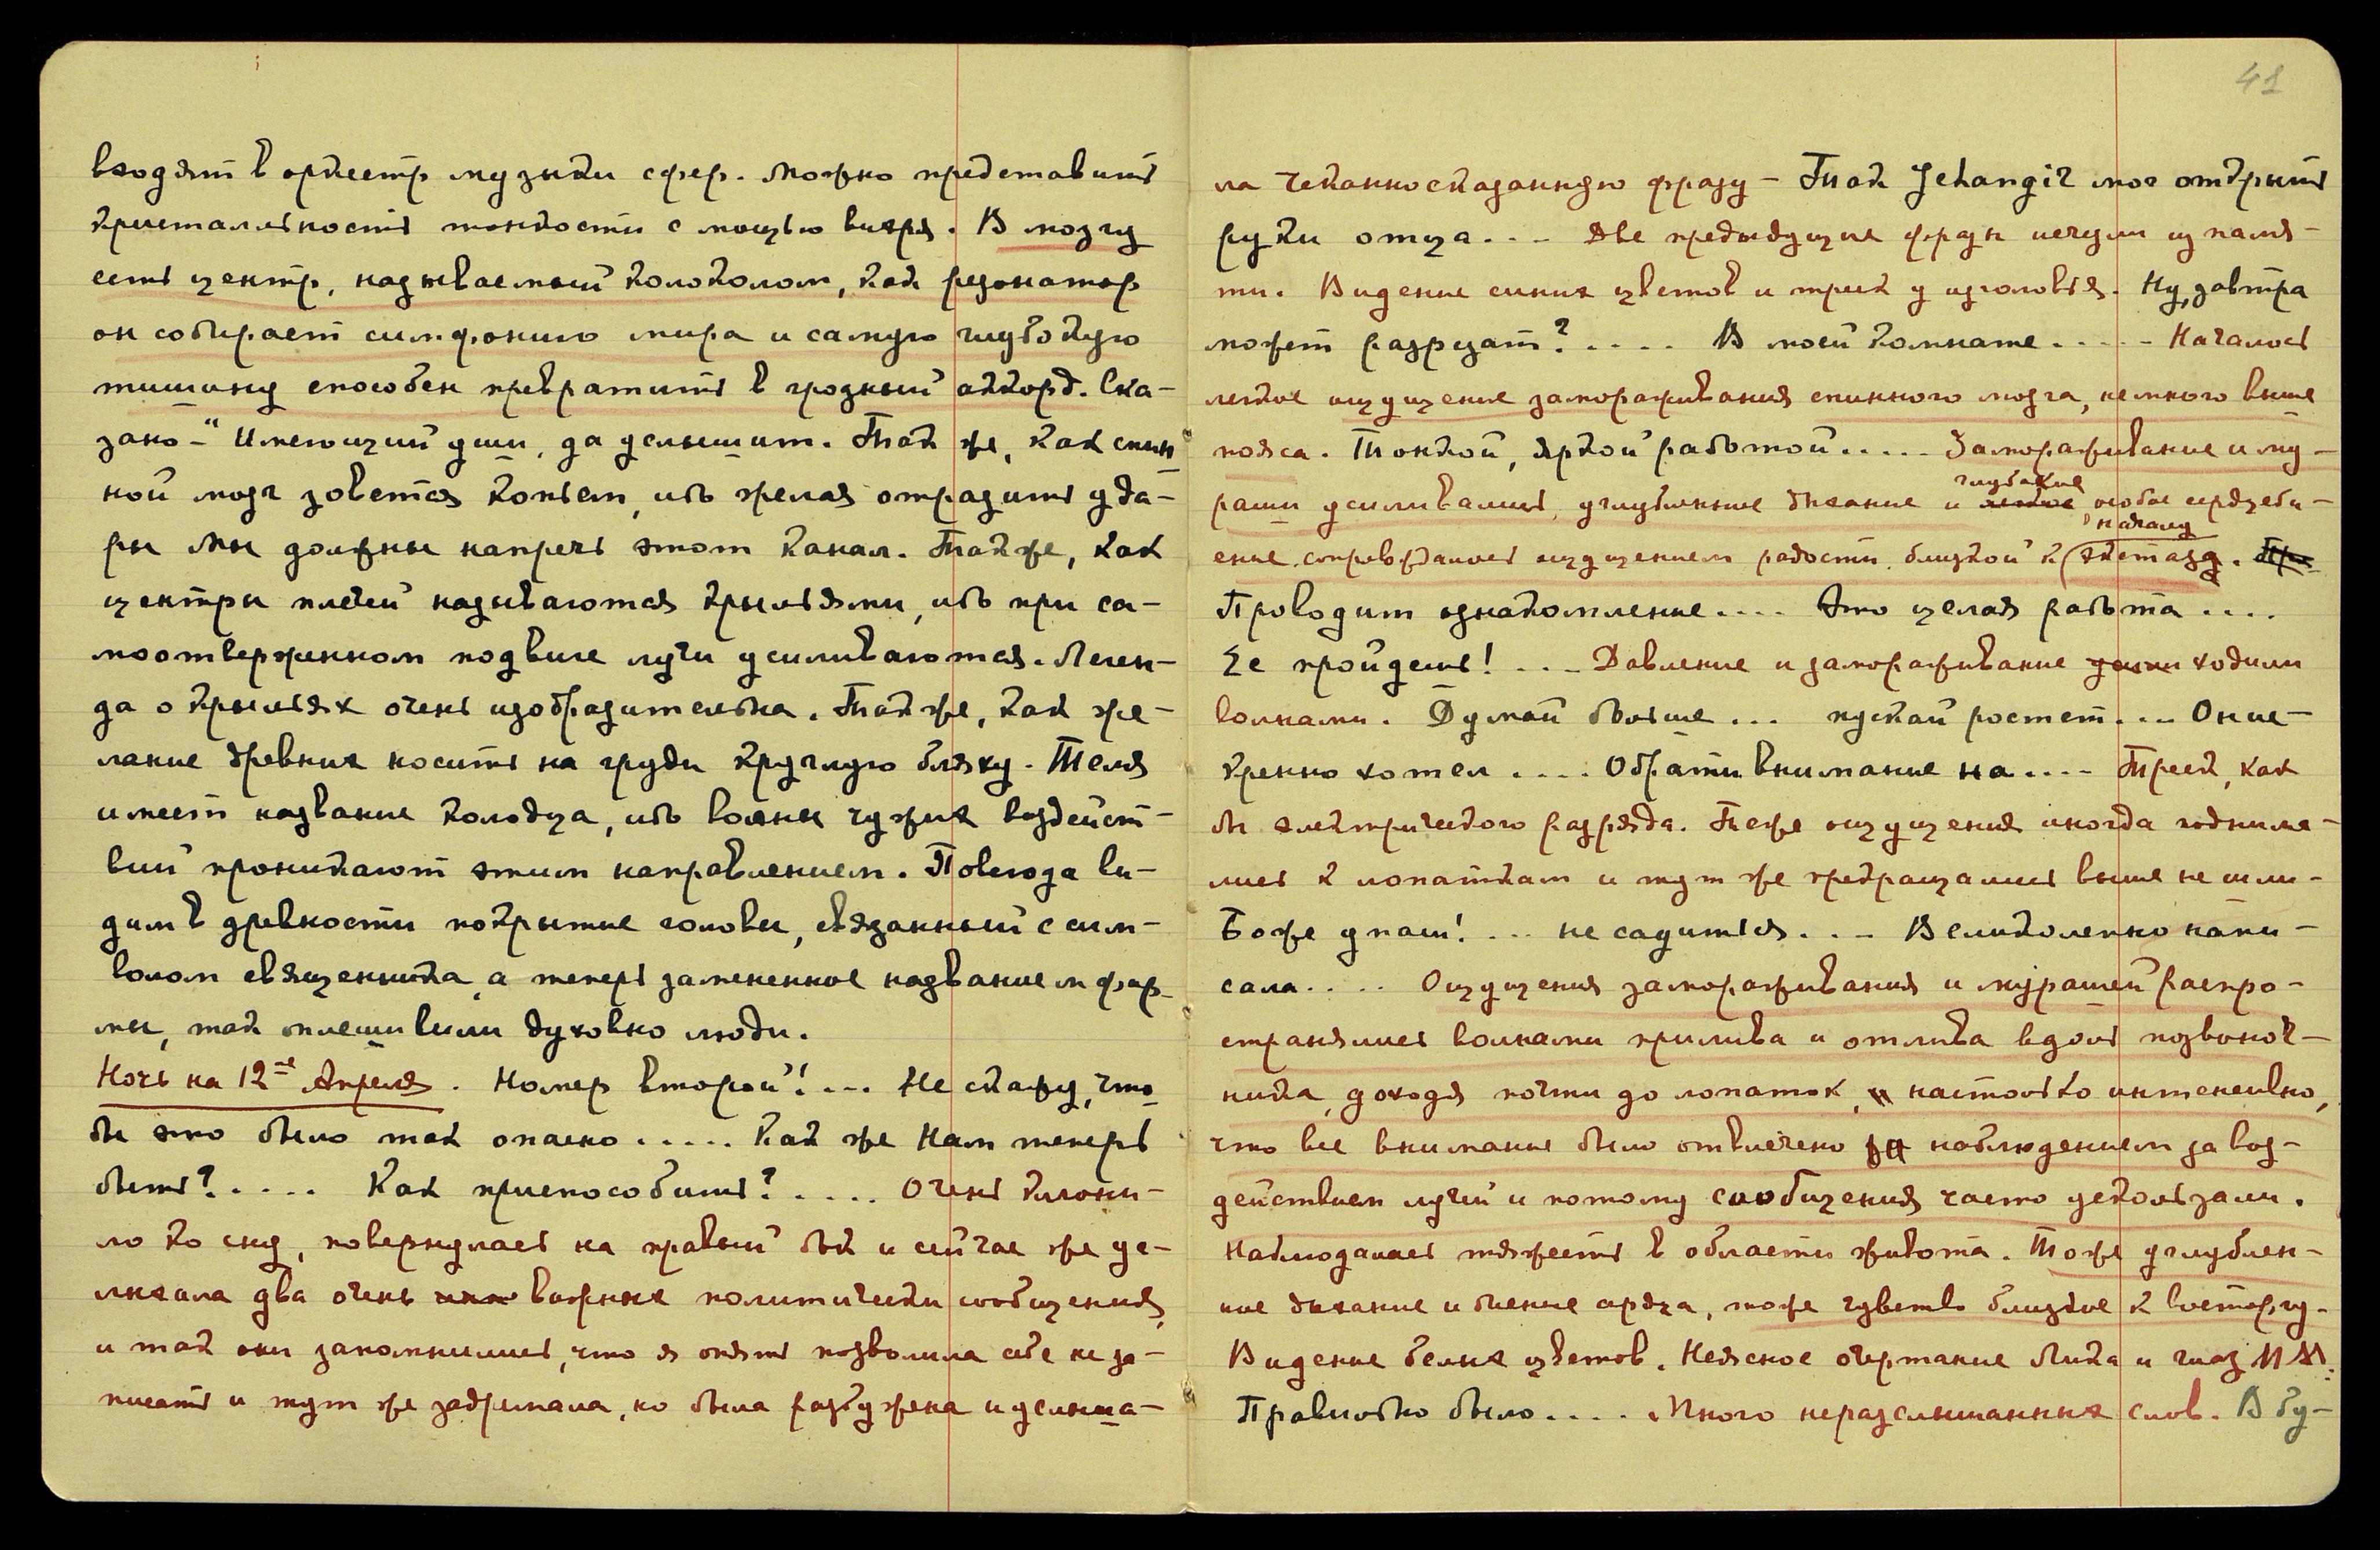 входят в оркестр музыки сфер. Можно представить
кристальность тонкости с мощью вихря. В мозгу
есть центр, называемый колоколом, как резонатор
он собирает симфонию мира и самую глубокую
тишину способен превратить в грозный аккорд. Ска-
зано –" Имеющий уши, да услышит. Так же, как спин
ной мозг зовется копьем, ибо желая отразить уда-
ры мы должны напречь этот канал. Также, как
центры плечей называются крыльями, ибо при са-
моотверженном подвиге лучи усиливаются. Леген-
да о крыльях очень изобразительна. Также, как же-
лание древних носить на груди круглую бляху. Темя
имеет название колодца, ибо волны чужих воздейст-
вий проникают этим направлением. Повсюда ви-
дим в древности покрытие головы, связанный с сим-
волом священника, а теперь замененное названием фир-
мы, так оплешивили духовно люди.
Ночь на 12ое Апреля. Номер второй!... Не скажу, что
бы это было так опасно..... Как же Нам теперь
быть?..... Как приспособить?..... Очень клони-
ло ко сну, повернулась на правый бок и сейчас же ус-
лыхала два очень важных политически сообщения,
и так они запомнились, что я опять позволила себе не за-
писать и тут же задремала, но была разбужена и услыша-
41
ла чеканносказанную фразу – Так Jehangir мог открыть
руки отца.... Две предыдущие фразы исчезли из памя-
ти. Видение синих цветов и трик у изголовья. Ну, завтра
может разрезат?.... В моей комнате..... Началось
легкое ощущение замораживания спинного мозга, немного выше
пояса. Тонкой, яркой работой..... Замораживание и му-
глубокие
раши усиливались, углубленные дыхание и особое сердцеби-
началу
ение сопровождалось ощущением радости близкой к экстазу.
Проводит ознакомление.... Это целая работа ....
Ее пройдешь!... Давление и замораживание ходили
волнами. Думай больше... пускай ростет.... Он ис-
кренно хотел .... Обрати внимание на.... Треск, как
бы электрического разряда. Теже ощущения иногда поднима-
лись к лопаткам и тут же прекращались выше не шли-
Боже упаси!... не садиться.... Великолепно напи-
сала..... Ощущения замораживания и мурашей распро-
странялись волнами прилива и отлива вдоль позвоноч-
ника, доходя почти до лопаток, настолько интенсивно,
что все внимание было отвлечено наблюдением за воз-
действием лучей и потому сообщения часто ускользали.
Наблюдалась тяжесть в области живота. Тоже углублен-
ное дыхание и биение сердца, тоже чувство близкое к восторгу.
Видение белых цветов. Неясное очертание Лика и глаз М.М.
Правильно было.... Много неразслышанных слов. В бу-